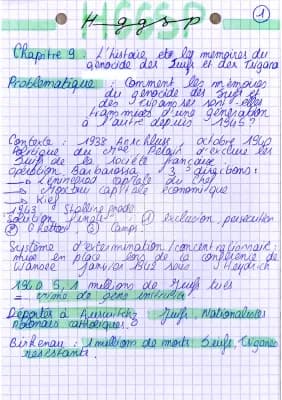 HGGSP
Hggsp
1
Chapitre 9 : L'histoire et les mémoires du
génocide des Juifs et des Tsiganes
Problématique : Comment les mémoires
du génocide des Juifs et
des Tsiganes sont-elles
transmises d'une génération
à l'autre depuis 1945?
Contexte : 1938 Anschluss, octobre 1940
Politique du Mal Pétain d'exclure les
Juifs de la société française
opération Barbarossa 3 directions :
capitale du Chef
capitale économique
Kief
1943
Solution finale : 1 exclusion, persécution
2 Ghettos 3 Camps
Système d'extermination/concentrationnaire :
mise en place lors de la conférence de
Wansee janvier 1942 sous Heydrich
5,1 millions de Juifs tués
= crime de
Déportés à Auswitchz Juifs, Nationalistes
polonais catholiques.
Birkenau : 1 million de morts Juifs, Tsiganes
résistants.